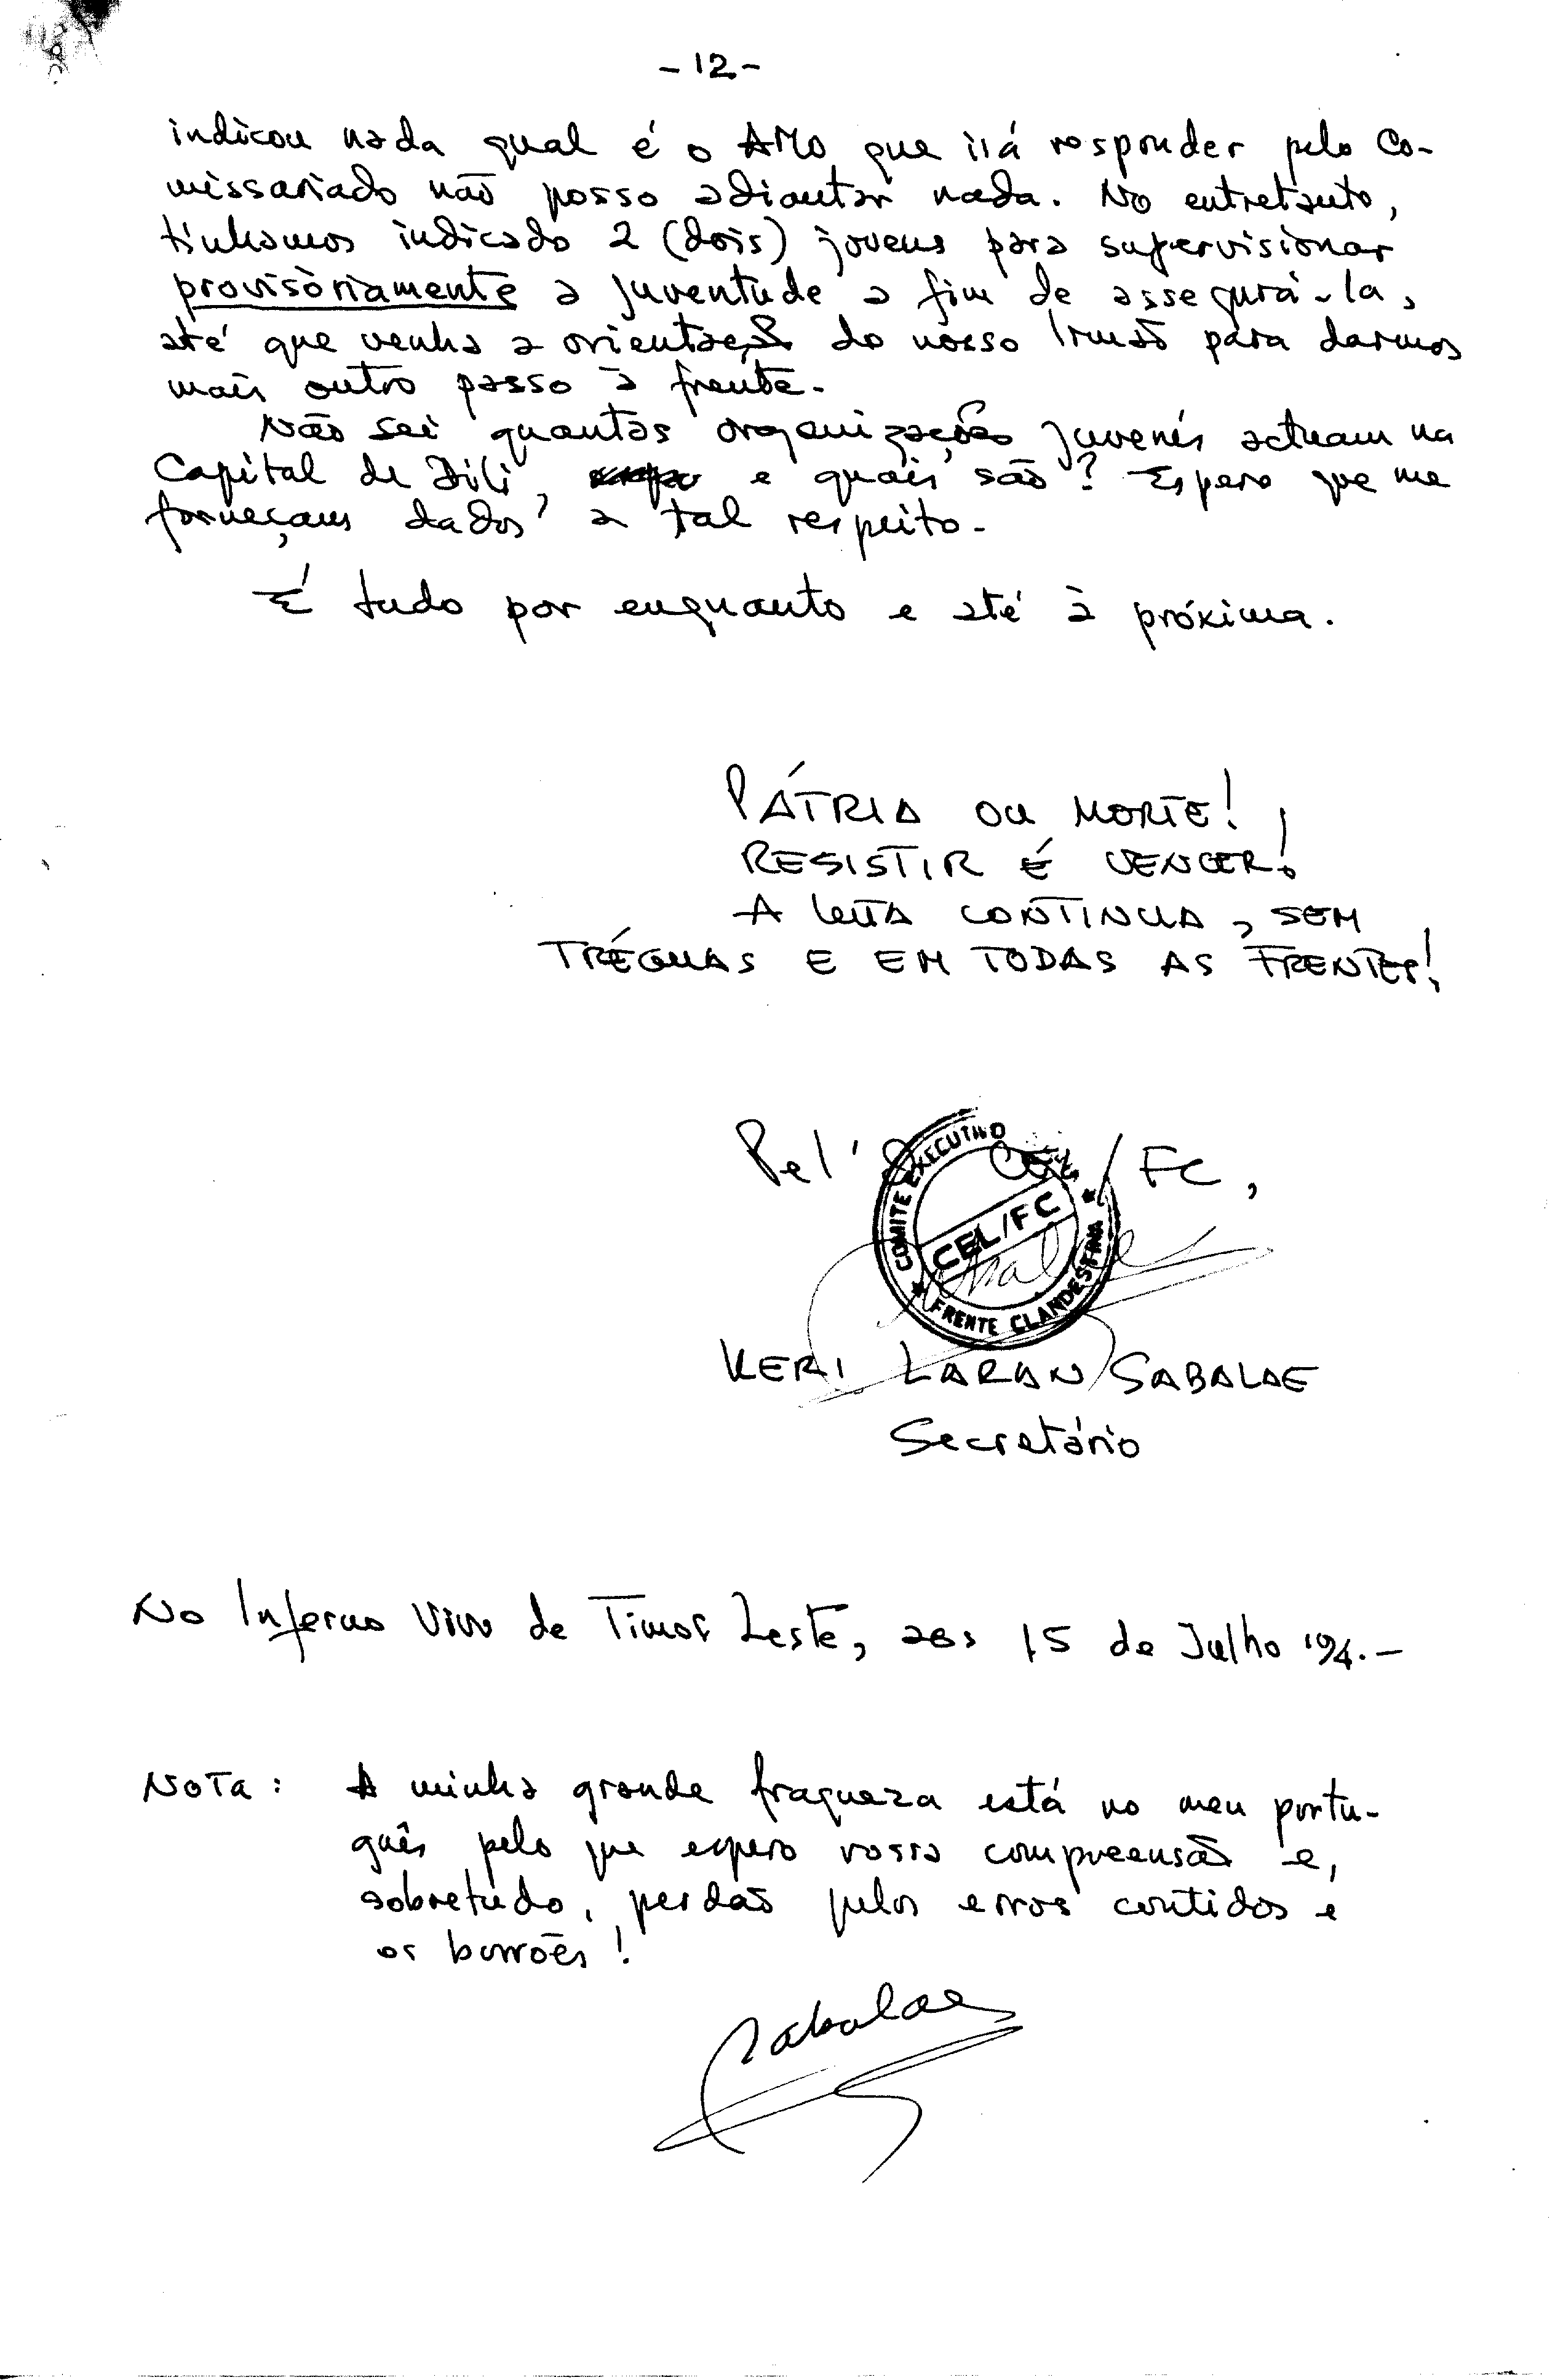 -12-
indicou nada qual é o AMO que irá responder pelo Co-
missariado não posso adiantar nada. No entretanto,
tinhamos indicado 2 (dois) jovens para supervisionar
provisòriamente a juventude a fim de assegurá-la,
até que venha a orientação do nosso Irmão para darmos
mais outro passo à frente.
Não sei quantas organizações juvenís actuam na
Capital de Dili, e quais são? Espero que me
forneçam dados a tal respeito.
É tudo por enquanto e até à próxima.
PÁTRIA OU MORTE!
RESISTIR É VENCER!
A LUTA CONTINUA, SEM
TRÉGUAS E EM TODAS AS FRENTES!
Pel'O CEL/FC,
COMITE EXECUTIVO
CEL/FC
FRENTE CLANDESTINA
Sabalae
KERI LARAN SABALAE
Secretário
No Inferno Vivo de Timor Leste, aos 15 de Julho '94.-
NOTA: A minha grande fraqueza está no meu portu-
guês pelo que espero vossa compreensão e,
sobretudo, perdão pelos erros contidos e
os borrões!
Sabalae